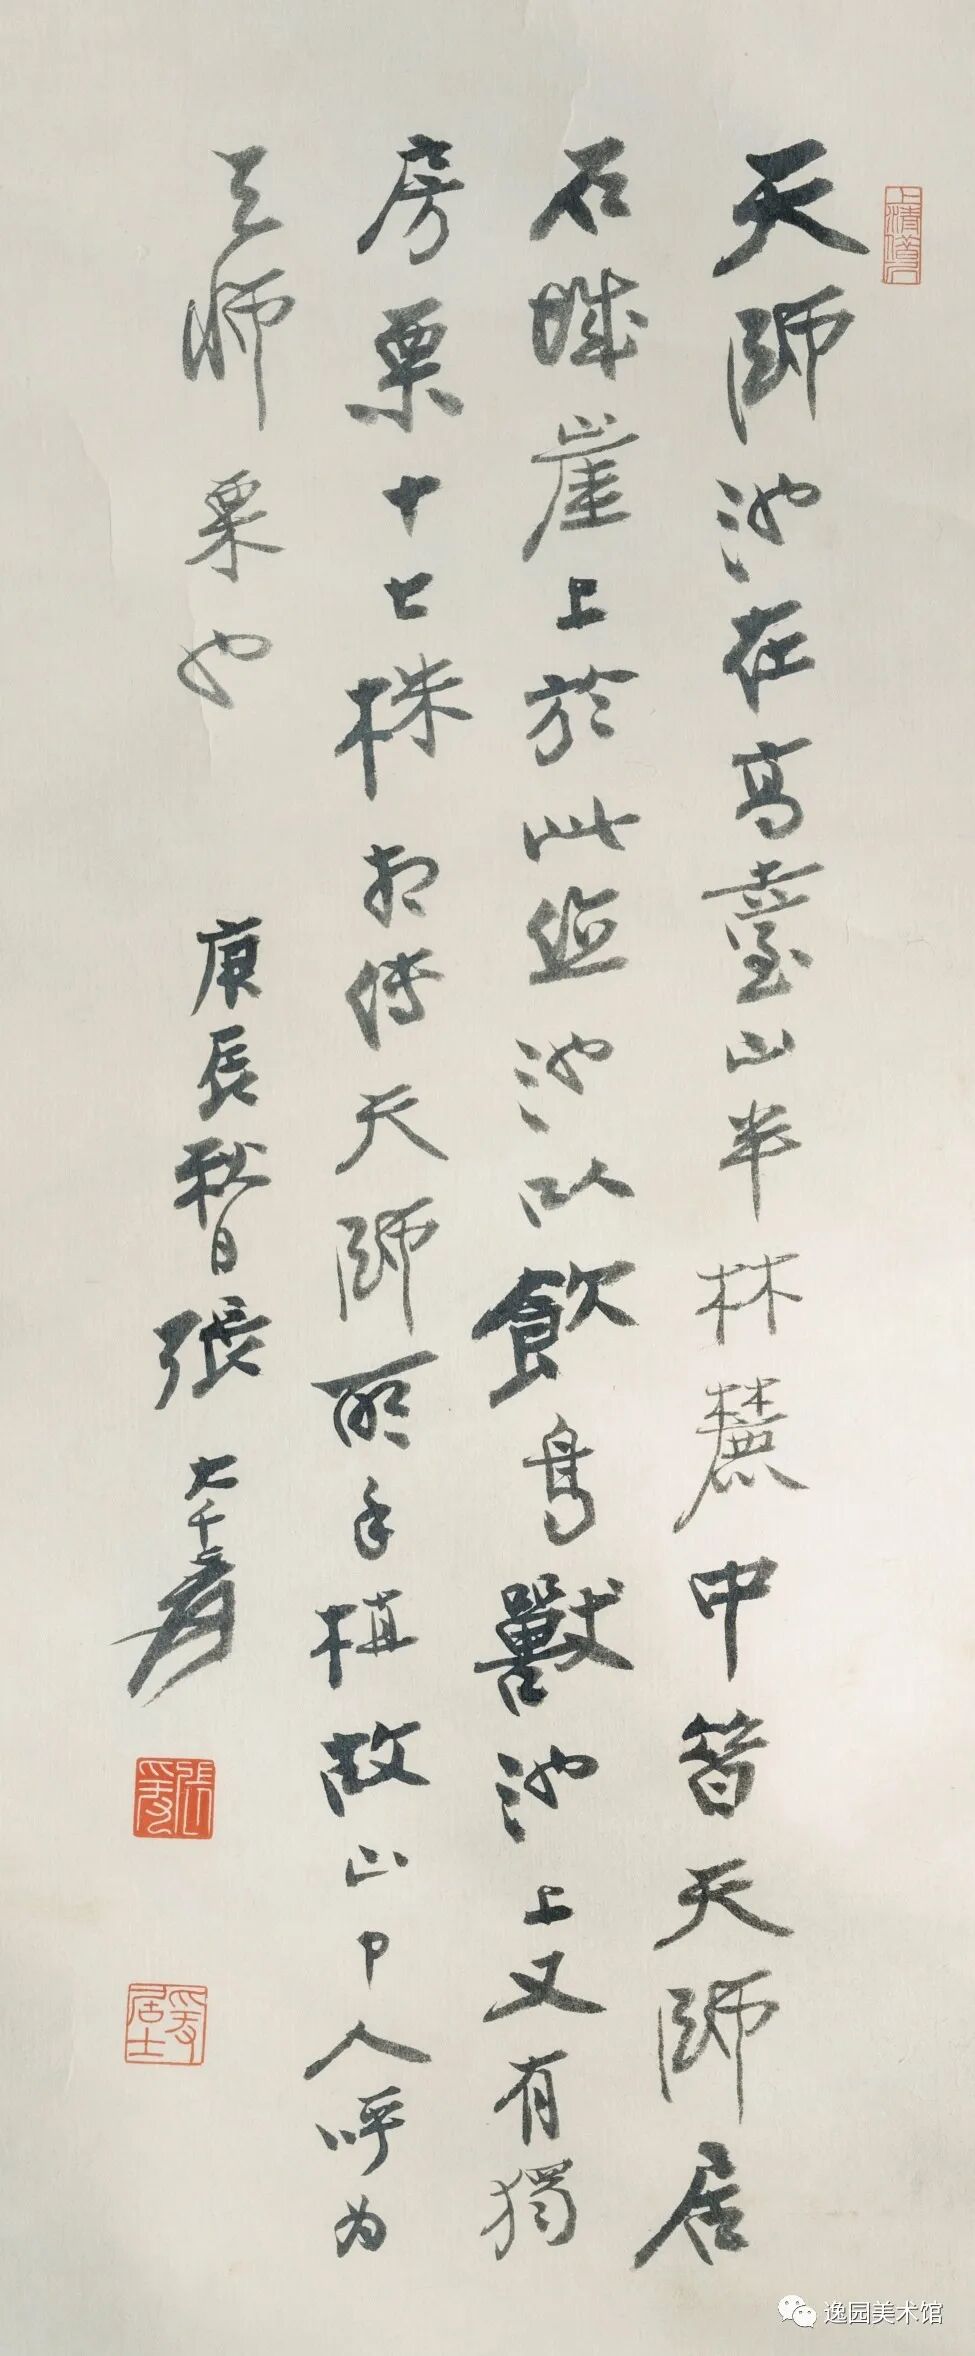 天師池在高臺山半林麓中昔天師居
石城崖上於此鑿池以飲鳥獸池上又有獨
房栗十七株相傳天師所手植故山中人呼為
天師栗也
庚辰秋日張大千爰
張爰
居士
逸园美术馆